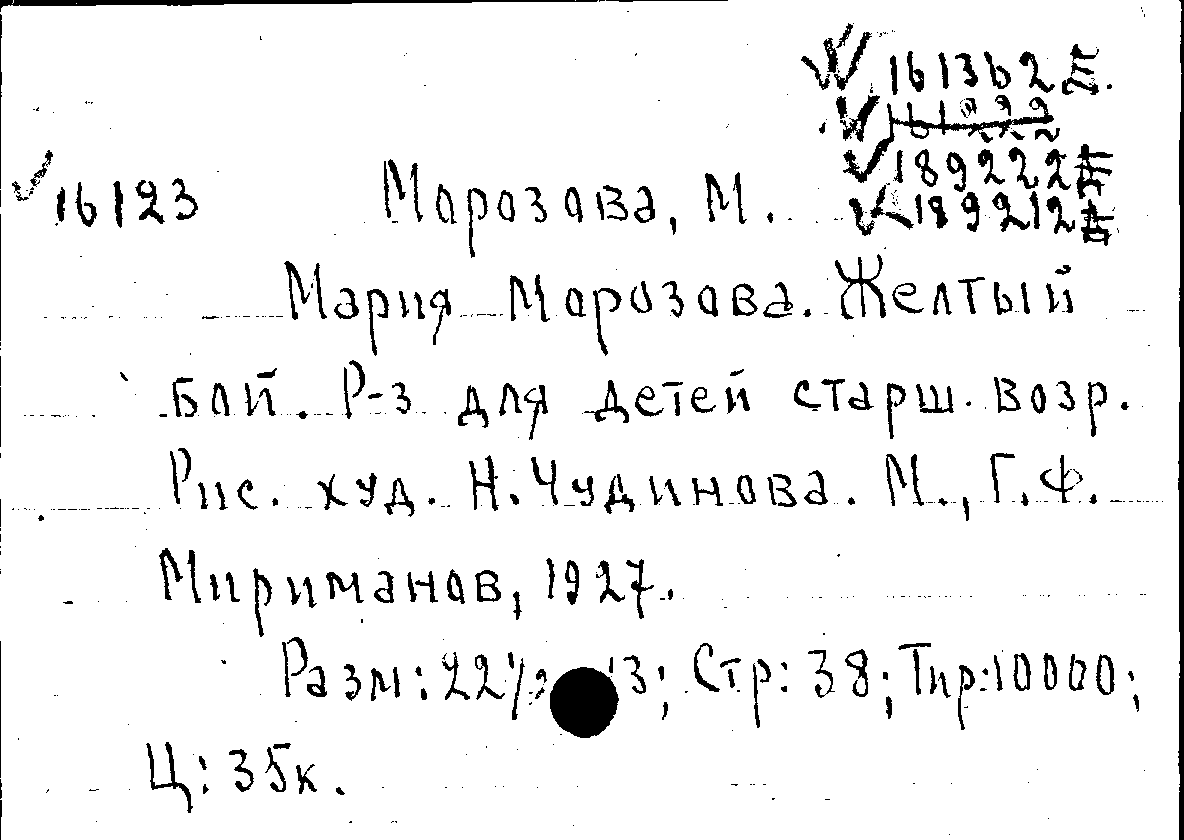 161362
189222
16123 Морозова, М. 189212
Мария Морозова. Желтый
бой. Р-з для детей старш. возр.
Рис. худ. Н. Чудинова. М., Г. Ф.
Мириманов, 1927.
Разм: 22 1/2 13; Стр: 38; Тир: 10000;
Ц: 35к.